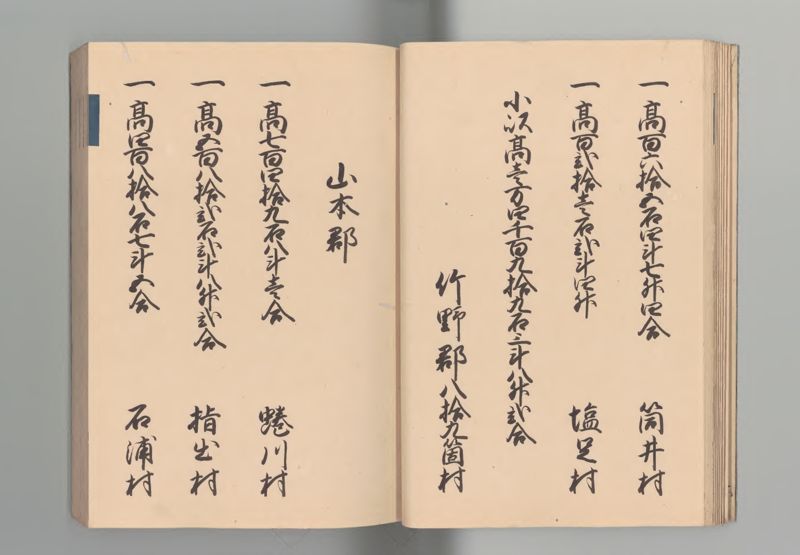 一高百六拾五石四斗七升四合 筒井村
一高百弐拾壱石弐斗四升 塩足村
小以高壱万四千百九拾九石三斗八升弐合
竹野郡八拾九箇村
山本郡
一高七百四拾九石八斗壱合 蜷川村
一高五百八拾弐石弐斗八升弐合 指出村
一高四百八拾八石七斗五合 石浦村